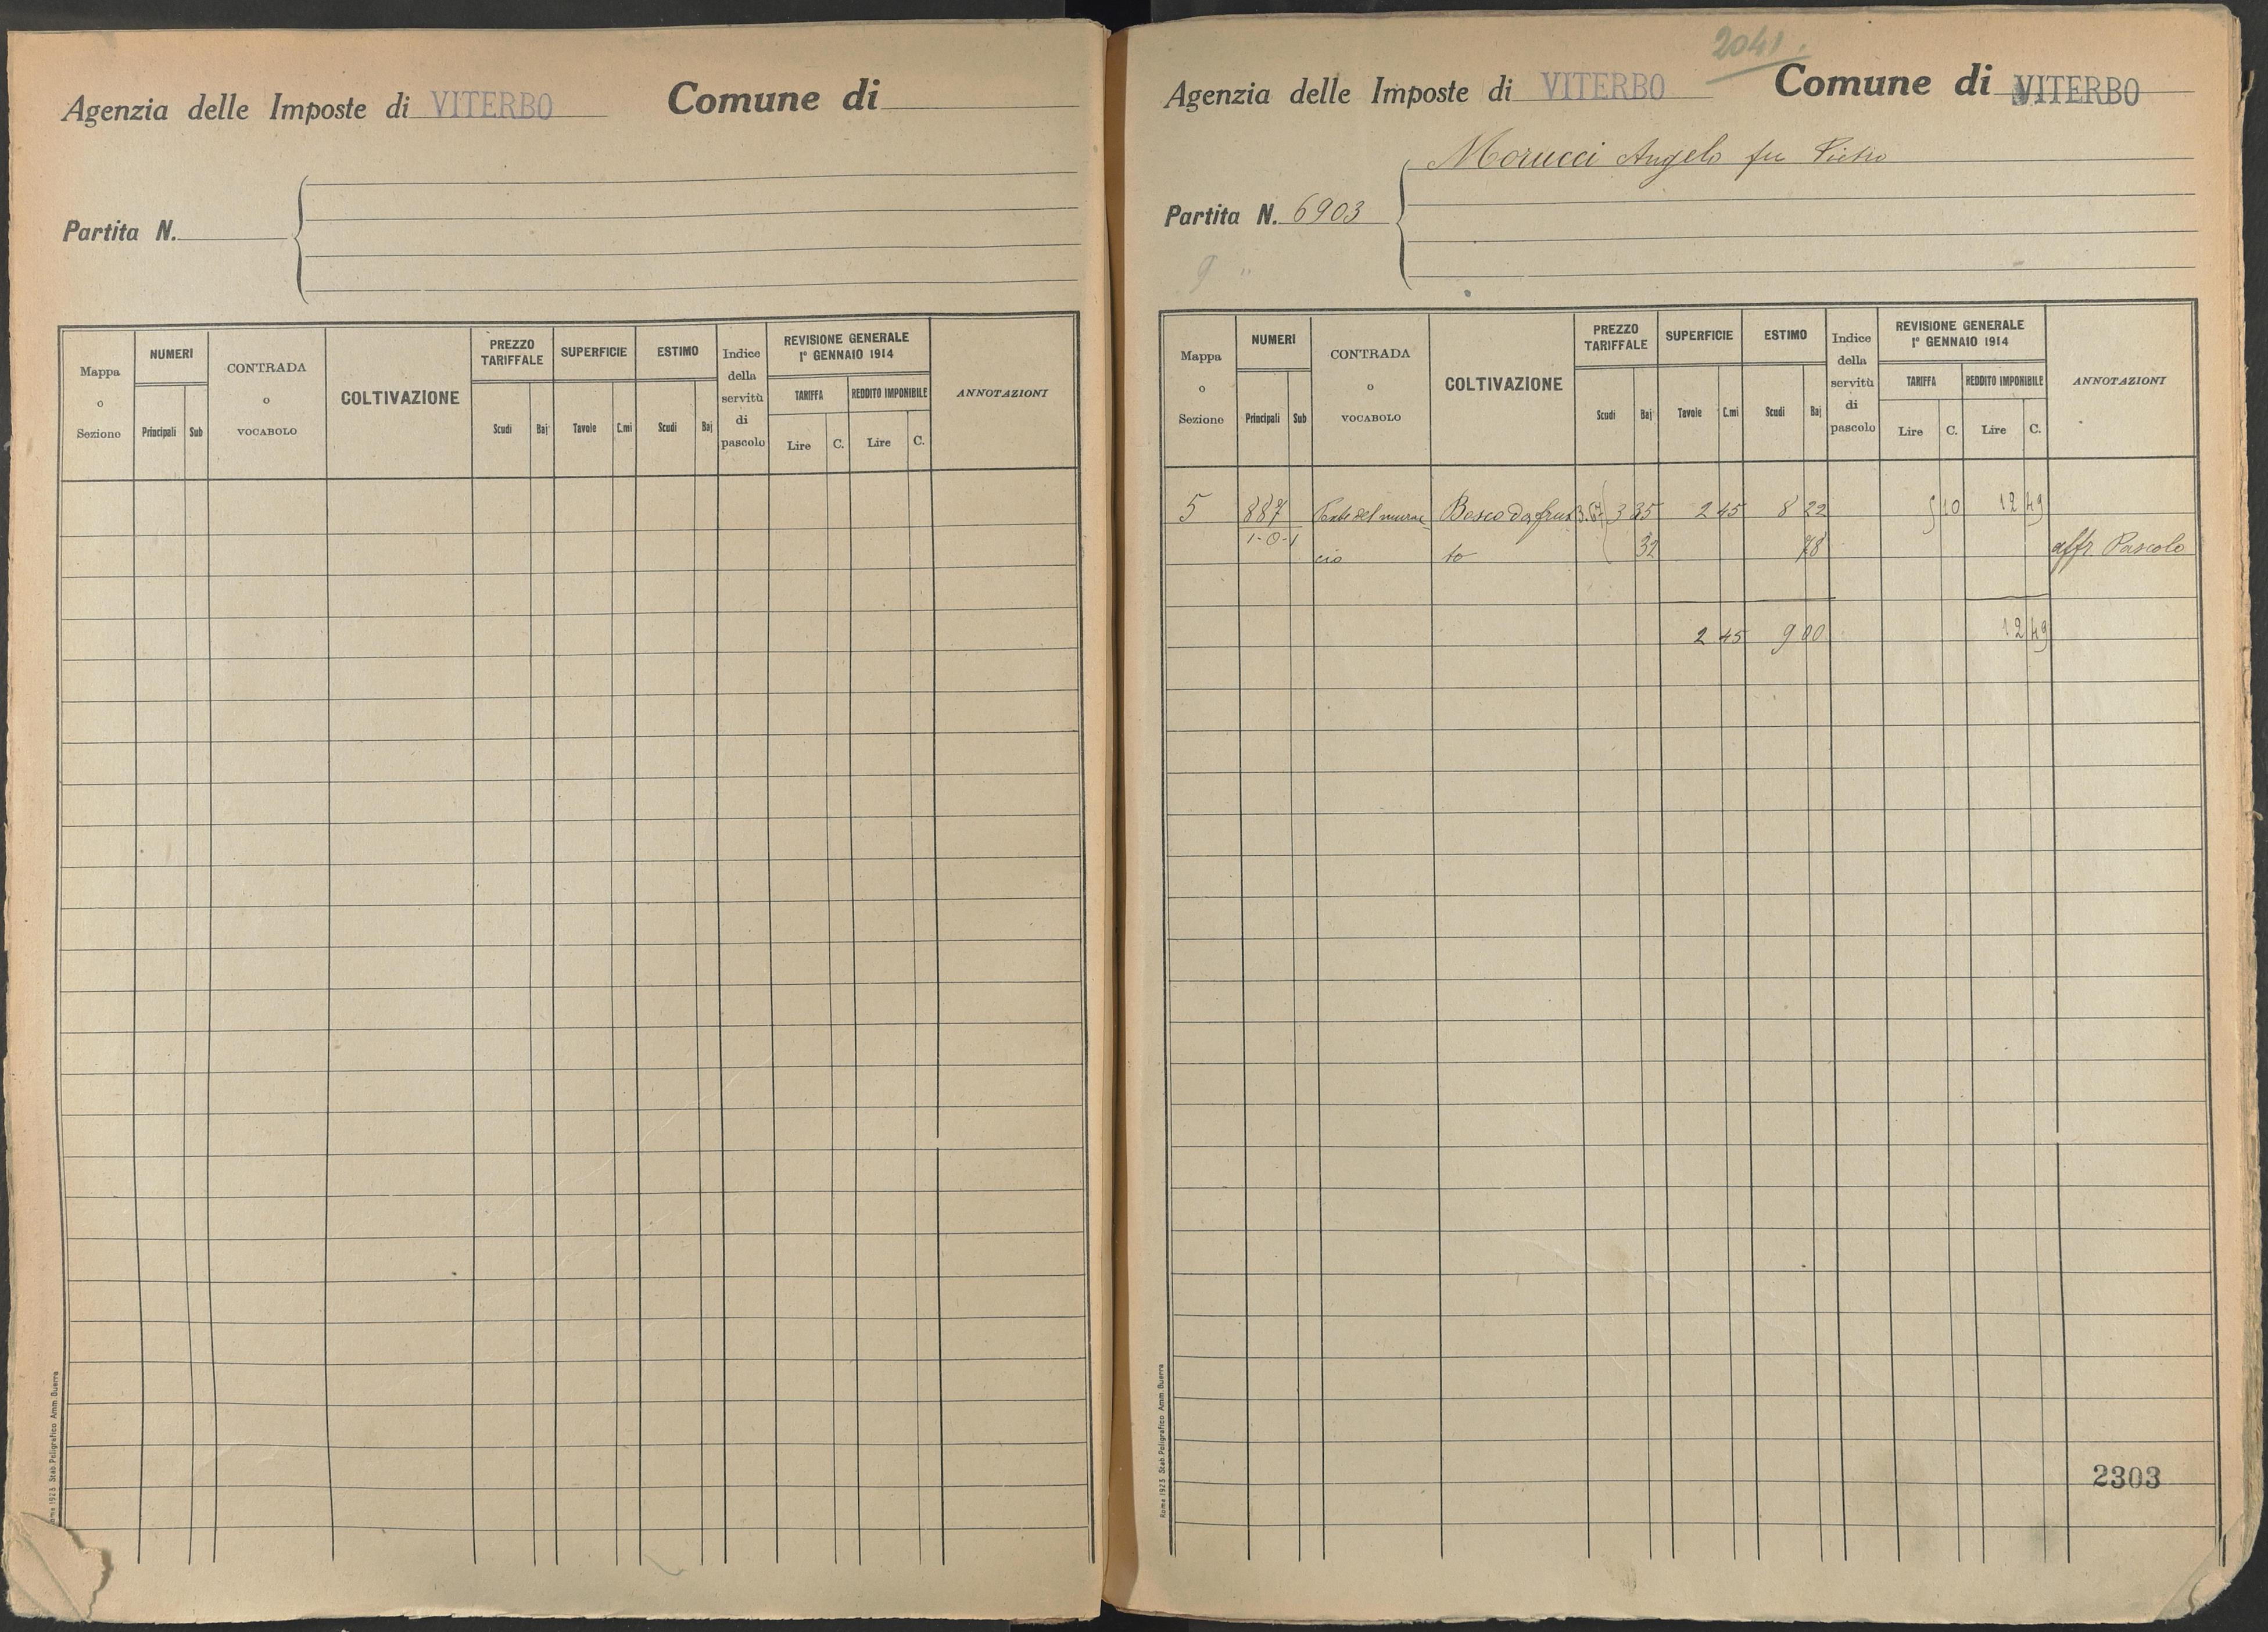 Agenzia delle Imposte di VITERBO Comune di
Partita N.
Mappa o Sezione
NUMERI
Principali Sub
CONTRADA o VOCABOLO
COLTIVAZIONE
PREZZO TARIFFALE
Scudi Baj
SUPERFICIE
Tavole C.mi
ESTIMO
Scudi Baj
Indice della servitù di pascolo
REVISIONE GENERALE
1° GENNAIO 1914
TARIFFA REDDITO IMPONIBILE
Lire C. Lire C.
ANNOTAZIONI
Roma 1923 Stab. Poligrafico Amm. Guerra
2041.
Agenzia delle Imposte di VITERBO Comune di VITERBO
Morucci Angelo fu Pietro
Partita N. 6903
Mappa o Sezione
NUMERI
Principali Sub
CONTRADA o VOCABOLO
COLTIVAZIONE
PREZZO TARIFFALE
Scudi Baj
SUPERFICIE
Tavole C.mi
ESTIMO
Scudi Baj
Indice della servitù di pascolo
REVISIONE GENERALE
1° GENNAIO 1914
TARIFFA REDDITO IMPONIBILE
Lire C. Lire C.
ANNOTAZIONI
5 887 del murac Bosco da frut 3.67 3 35 2 45 8 22 5 10 12 49
1-0-1 cio to 32 78 affr. Pascolo
2 45 9 00 12 49
2303
Roma 1923 Stab. Poligrafico Amm. Guerra